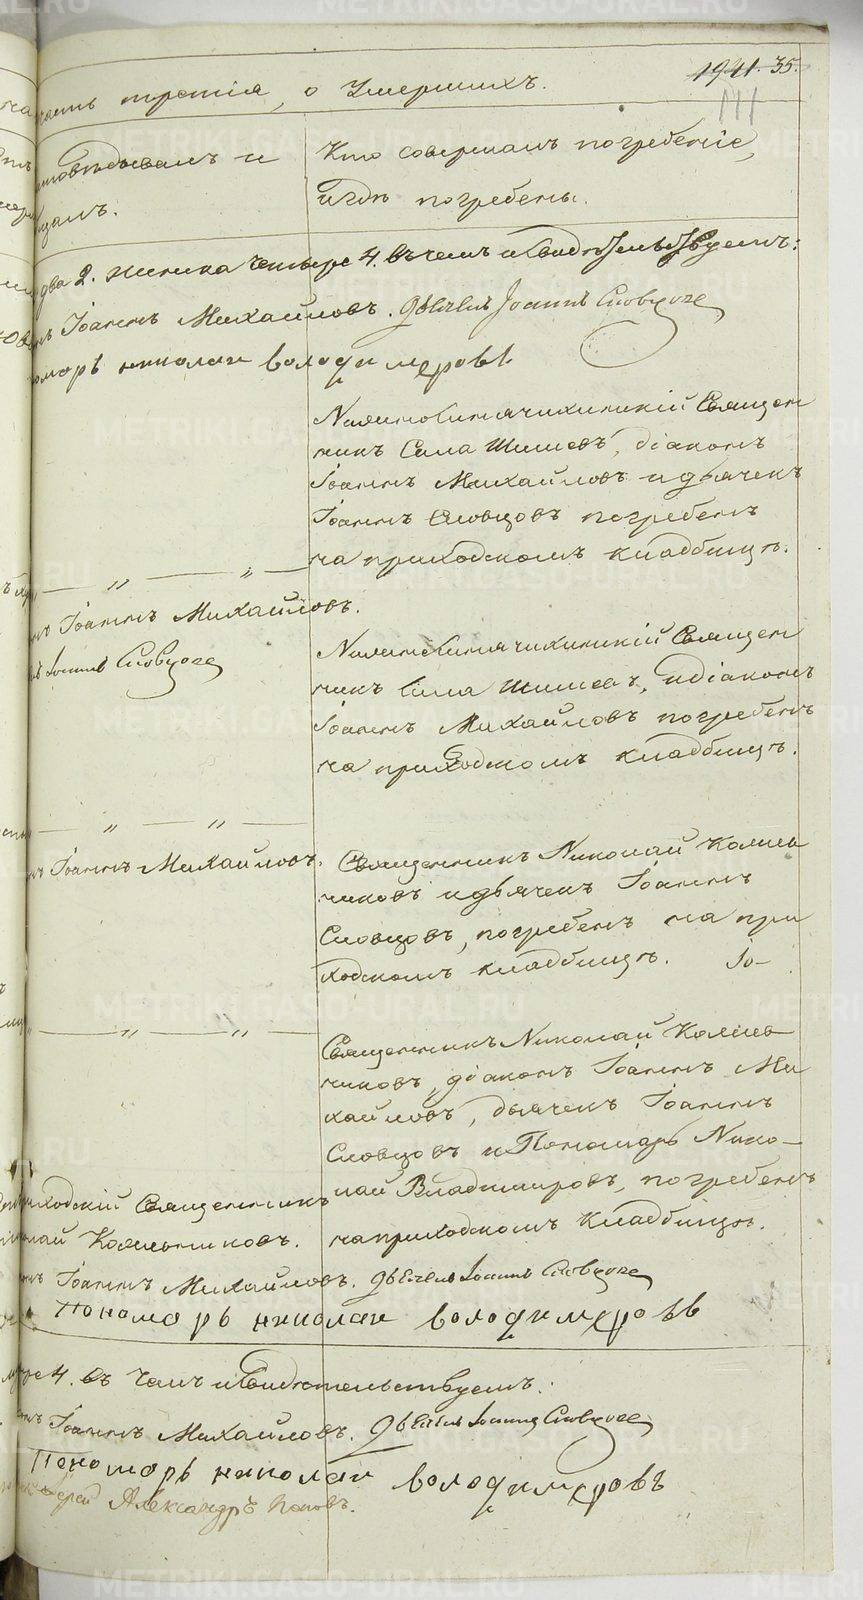 1941. 35.
часть третія, о Умершихъ.
исповѣдывалъ и
Кто совершалъ погребеніе,
и гдѣ погребены.
два 2. женска четыре 4. въ чемъ и свидѣтельствуемъ:
Іоаннъ Михайловъ. дьячекъ Іоаннъ Словцовъ
пономарь николаи володимеровъ
Священ
никъ Сила Шишевъ, діаконъ
Іоаннъ Михайловъ и дьячекъ
Іоаннъ Словцовъ погребенъ
на приходскомъ кладбищѣ.
Іоаннъ Михайловъ.
Іоаннъ Словцовъ
Священ
никъ Сила Шишевъ, и діаконъ
Іоаннъ Михайловъ погребенъ
на приходскомъ кладбищѣ.
Іоаннъ Михайловъ.
Священникъ Николай Колче
никовъ и дьячекъ Іоаннъ
Словцовъ, погребенъ на при
ходскомъ кладбищѣ. Іо-
Священникъ Николай
никовъ, діаконъ Іоаннъ Ми
хайловъ, дьячекъ Іоаннъ
Словцовъ и Пономарь Нико-
лай Владимировъ, погребенъ
на приходскомъ кладбищѣ.
приходскій Священникъ
Іоаннъ Михайловъ. дьячекъ Іоаннъ Словцовъ
Пономарь николаи володимеровъ
4. въ чемъ и свидѣтельствуемъ:
Іоаннъ Михайловъ. Дьячекъ Іоаннъ Словцовъ
Пономарь николаи володимеровъ
іерей Александръ Поповъ.
METRIKI.GASO-URAL.RU